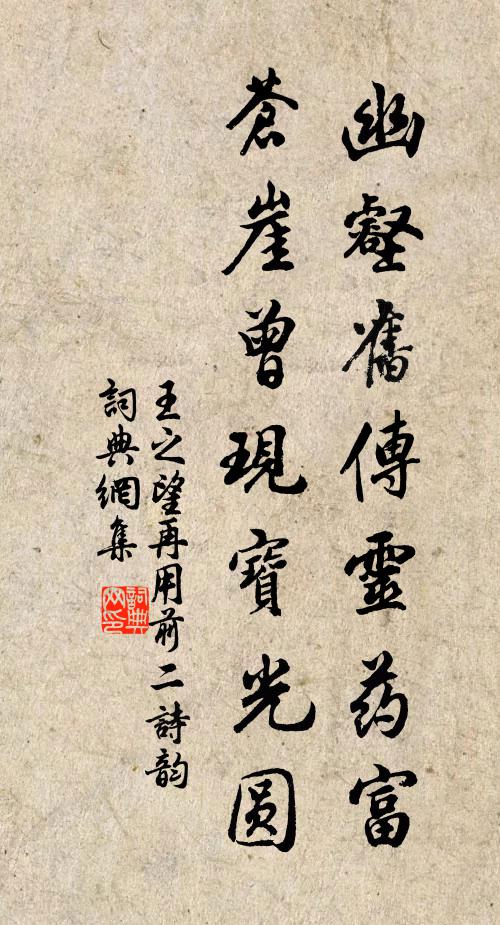 幽壑舊傳靈药富
蒼崖曾現寶光圆
王之望再用前二詩韵
詞典網集
詞典网印